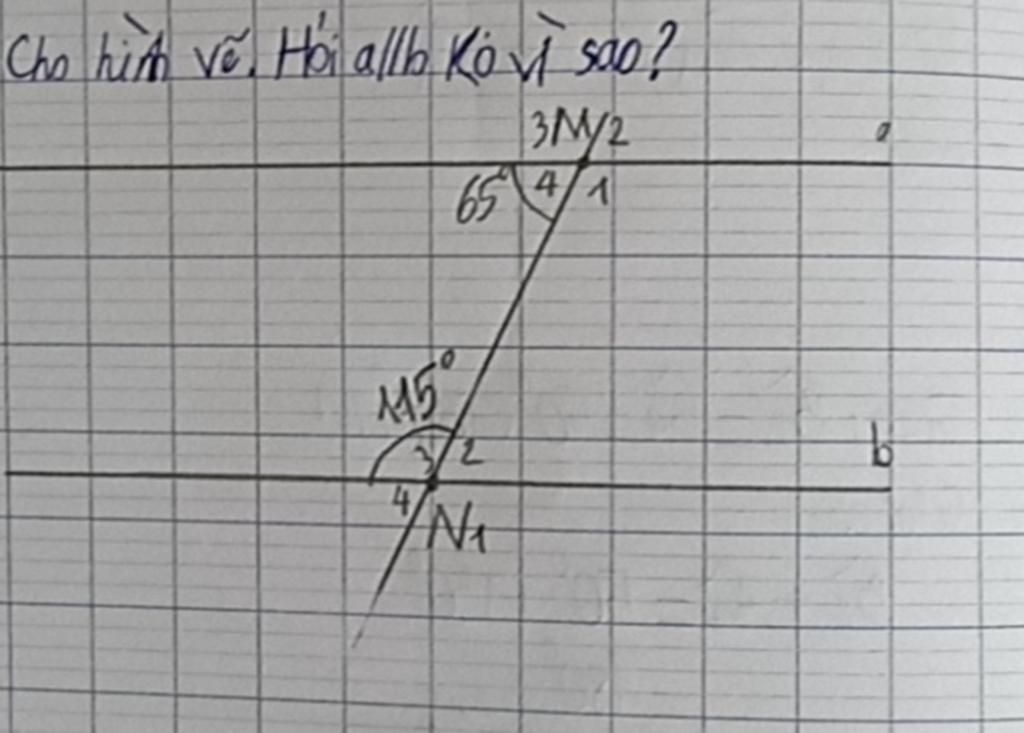 Cho hình vẽ. Hỏi a//b Ko vì sao?
3 M 2
a
65° 4 1
115°
3 2
b
4
N 1